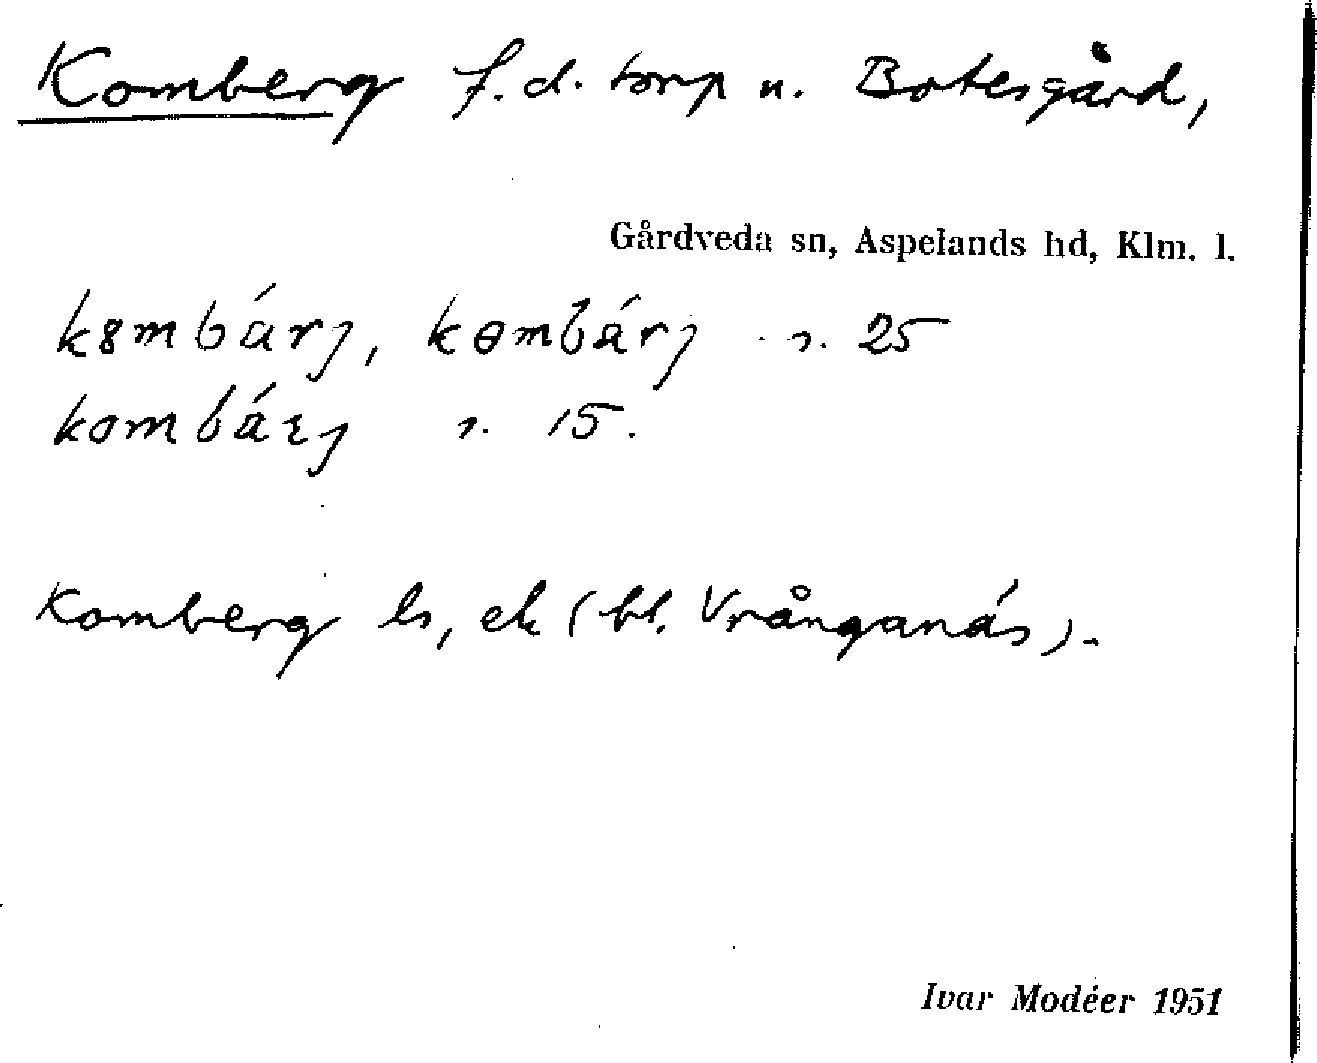 Komberg f.d. torp u. Botesgård,
Gårdveda sn, Aspelands hd, Klm. l.
kɞmbárj, kɵmbárj s. 25
kombárj s. 15.
Komberg ls, ek (bl. Vrånganäs).
Ivar Modéer 1951